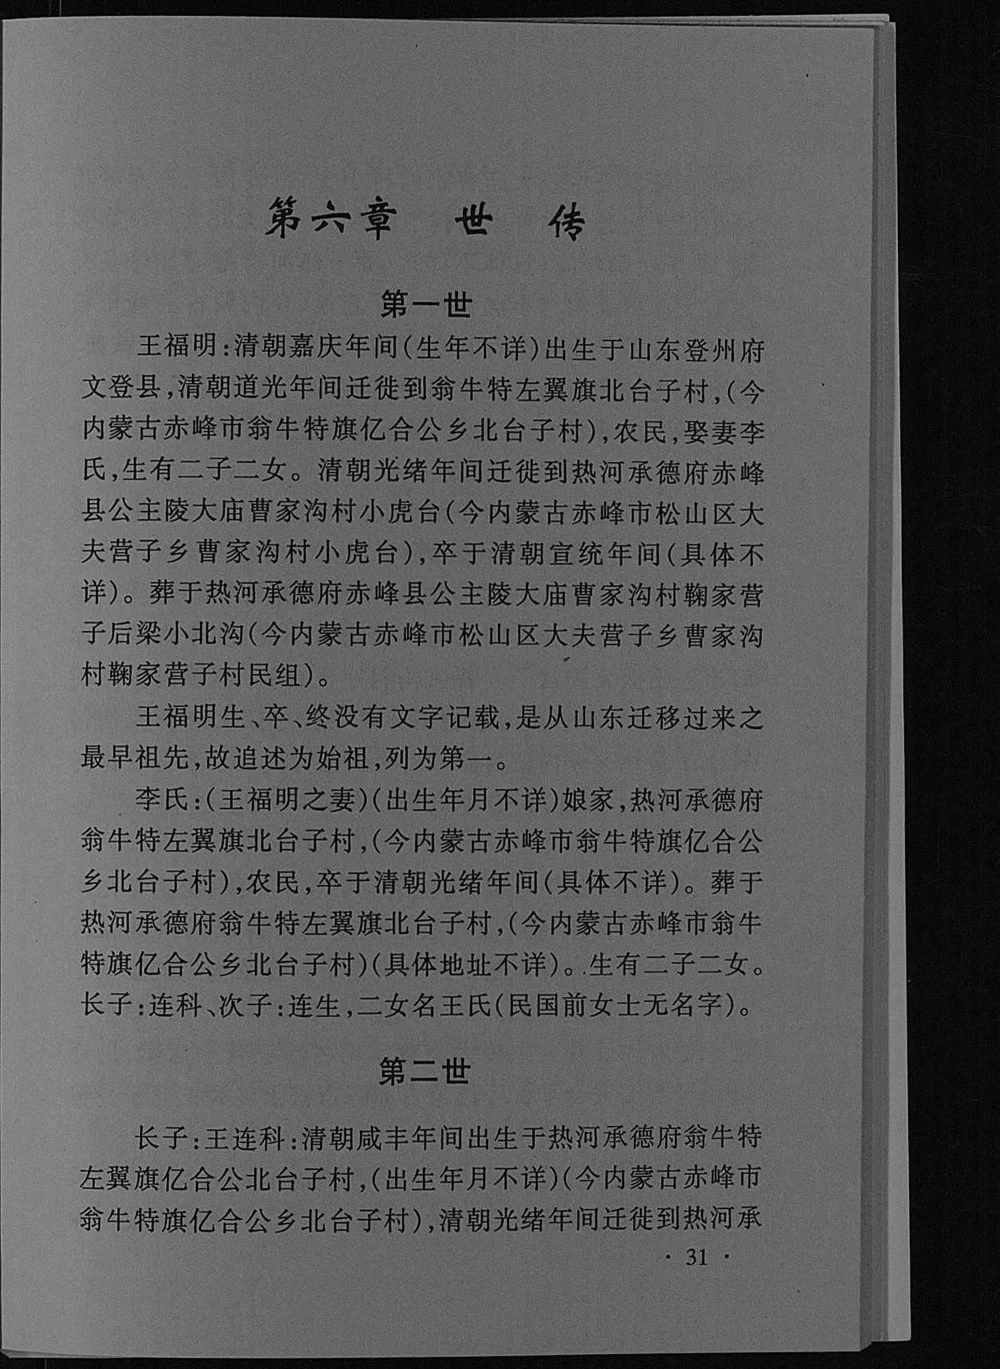 第六章 世 传
第一世
王福明:清朝嘉庆年间(生年不详)出生于山东登州府
文登县,清朝道光年间迁徙到翁牛特左翼旗北台子村,(今
内蒙古赤峰市翁牛特旗亿合公乡北台子村),农民,娶妻李
氏,生有二子二女。清朝光绪年间迁徙到热河承德府赤峰
县公主陵大庙曹家沟村小虎台(今内蒙古赤峰市松山区大
夫营子乡曹家沟村小虎台),卒于清朝宣统年间(具体不
详)。葬于热河承德府赤峰县公主陵大庙曹家沟村鞠家营
子后梁小北沟(今内蒙古赤峰市松山区大夫营子乡曹家沟
村鞠家营子村民组)。
王福明生、卒、终没有文字记载,是从山东迁移过来之
最早祖先,故追述为始祖,列为第一。
李氏:(王福明之妻)(出生年月不详)娘家,热河承德府
翁牛特左翼旗北台子村,(今内蒙古赤峰市翁牛特旗亿合公
乡北台子村),农民,卒于清朝光绪年间(具体不详)。葬于
热河承德府翁牛特左翼旗北台子村,(今内蒙古赤峰市翁牛
特旗亿合公乡北台子村)(具体地址不详)。生有二子二女。
长子:连科、次子:连生,二女名王氏(民国前女士无名字)。
第二世
长子:王连科:清朝咸丰年间出生于热河承德府翁牛特
左翼旗亿合公北台子村,(出生年月不详)(今内蒙古赤峰市
翁牛特旗亿合公乡北台子村),清朝光绪年间迁徙到热河承
· 31 ·